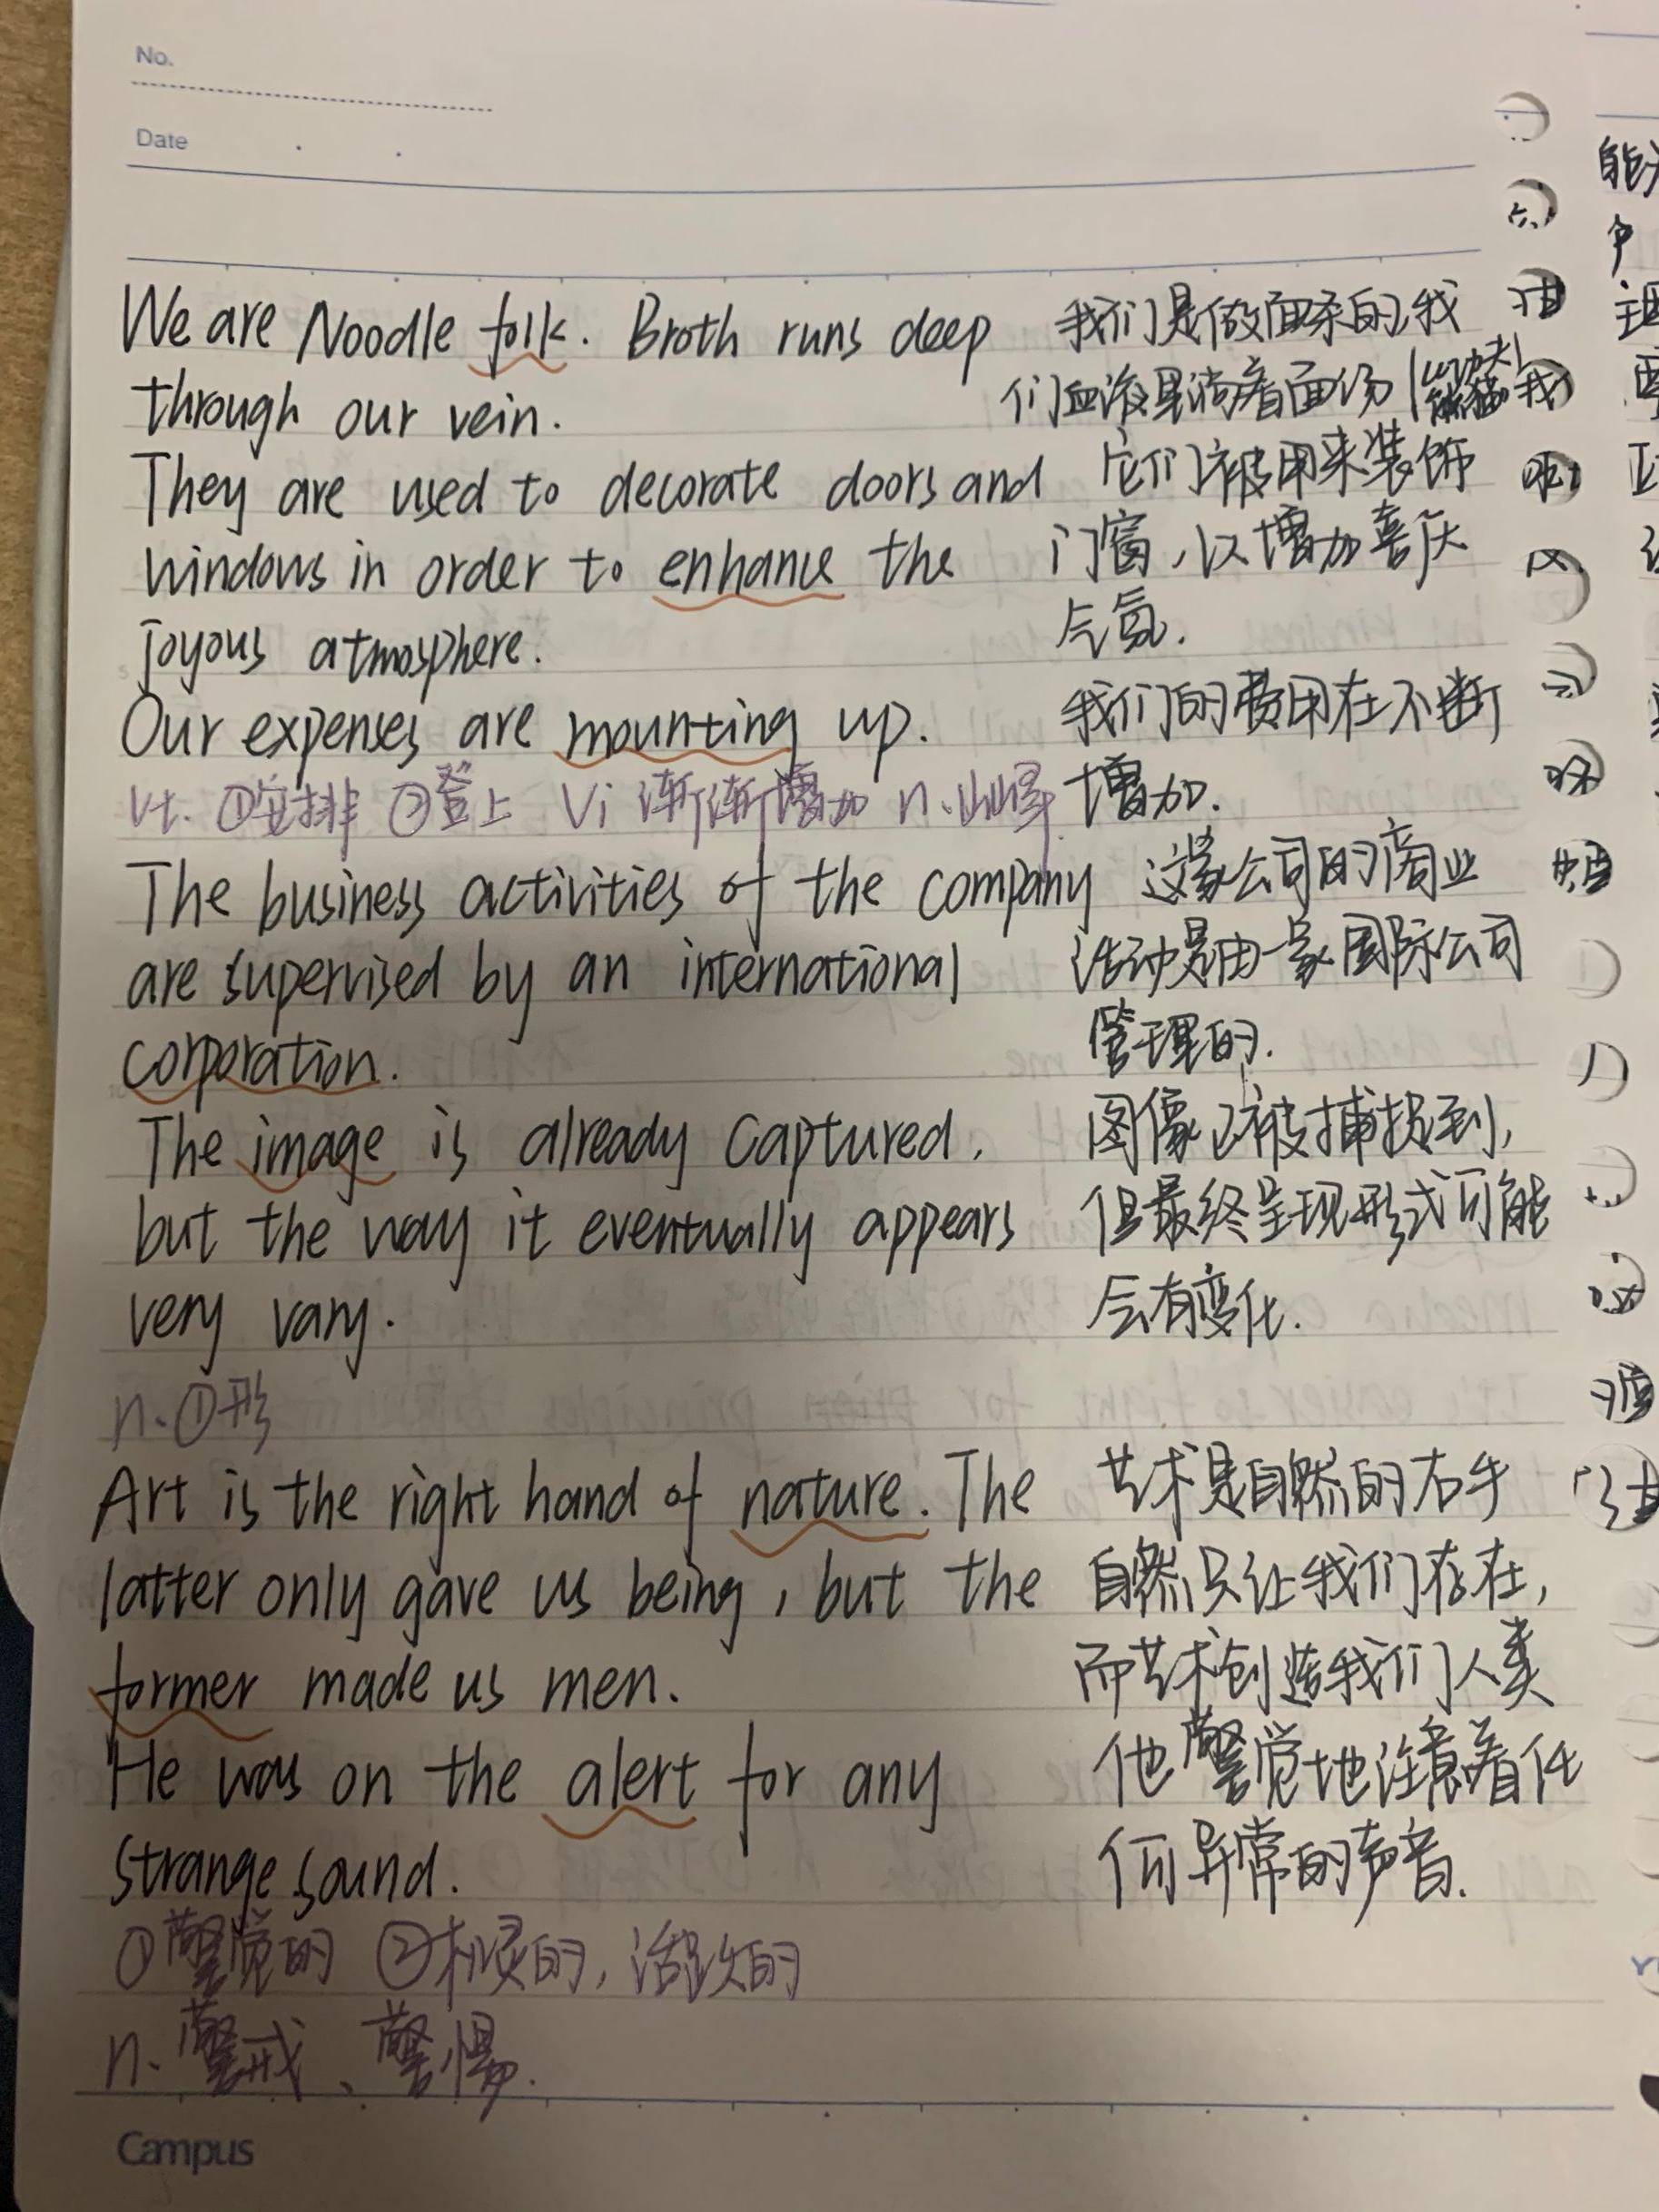 No.
Date
We are Noodle folk. Broth runs deep 我们是做面条的,我
through our vein. 们血液里淌着面汤
They are used to decorate doors and 它们被用来装饰
windows in order to enhance the 门窗,以增加喜庆
joyous atmosphere. 气氛.
Our expenses are mounting up. 我们的费用在不断
vt. ①安排 ②登上 vi 渐渐增加 n.山峰 增加.
The business activities of the company 这家公司的商业
are supervised by an international 活动是由一家国际公司
corporation. 管理的.
The image is already captured. 图像已被捕捉到,
but the way it eventually appears 但最终呈现形式可能
very vary. 会有变化.
n.①形
Art is the right hand of nature. The 艺术是自然的右手
latter only gave us being, but the 自然只让我们存在,
former made us men. 而艺术创造我们人类
He was on the alert for any 他警觉地注意着任
strange sound. 何异常的声音.
①警觉的 ②机灵的,活跃的
n.警戒、警惕.
Campus